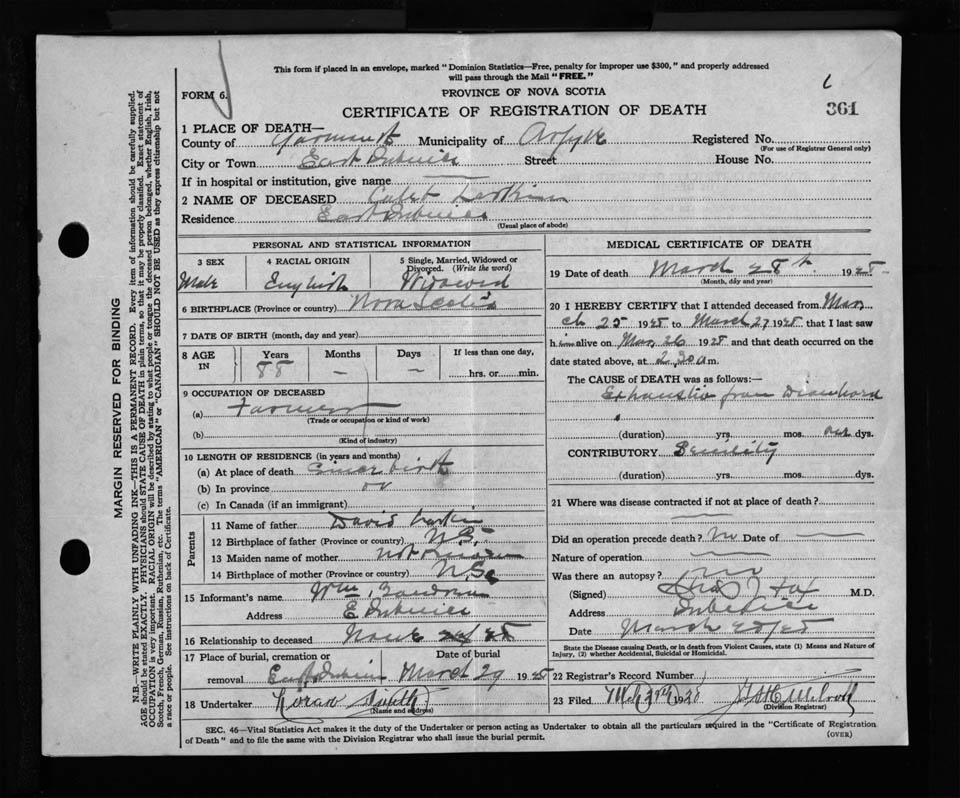 This form if placed in an envelope, marked "Dominion Statistics—Free, penalty for improper use $300," and properly addressed
will pass through the Mail "FREE."
FORM 6.
PROVINCE OF NOVA SCOTIA
361
CERTIFICATE OF REGISTRATION OF DEATH
1 PLACE OF DEATH—
County of Yarmouth Municipality of Argyle Registered No.
(For use of Registrar General only)
City or Town East Street House No.
If in hospital or institution, give name
2 NAME OF DECEASED Larkin
Residence East
(Usual place of abode)
PERSONAL AND STATISTICAL INFORMATION
3 SEX
4 RACIAL ORIGIN
5 Single, Married, Widowed or
Divorced. (Write the word)
Male English Widowed
6 BIRTHPLACE (Province or country) Nova Scotia
7 DATE OF BIRTH (month, day and year)
8 AGE
IN
Years Months Days If less than one day,
88 – – hrs. or min.
9 OCCUPATION OF DECEASED
(a) Farmer
(Trade or occupation or kind of work)
(b)
(Kind of industry)
10 LENGTH OF RESIDENCE (in years and months)
(a) At place of death Since birth
(b) In province
(c) In Canada (if an immigrant)
Parents
11 Name of father David Larkin
12 Birthplace of father (Province or country) N.S.
13 Maiden name of mother not known
14 Birthplace of mother (Province or country) N.S.
15 Informant's name Wm
Address E.
16 Relationship to deceased
17 Place of burial, cremation or
removal
Date of burial
East March 29 1928
18 Undertaker Smith
(Name and address)
MEDICAL CERTIFICATE OF DEATH
19 Date of death March 28th 1928
(Month, day and year)
20 I HEREBY CERTIFY that I attended deceased from Mar
ch 25 1928 to March 27 1928 that I last saw
him alive on Mar 26 1928 and that death occurred on the
date stated above, at 2.30 a m.
The CAUSE of DEATH was as follows:—
Exhaustion from
(duration) yrs. mos. dys.
CONTRIBUTORY Senility
(duration) yrs. mos. dys.
21 Where was disease contracted if not at place of death?
Did an operation precede death? no Date of
Nature of operation
Was there an autopsy? no
(Signed) Fox M.D.
Address
Date March 28/28
State the Disease causing Death, or in death from Violent Causes, state (1) Means and Nature of
Injury, (2) whether Accidental, Suicidal or Homicidal.
22 Registrar's Record Number
23 Filed 1928
(Division Registrar)
SEC. 46—Vital Statistics Act makes it the duty of the Undertaker or person acting as Undertaker to obtain all the particulars required in the "Certificate of Registration
of Death" and to file the same with the Division Registrar who shall issue the burial permit.
(OVER)
MARGIN RESERVED FOR BINDING
N.B.—WRITE PLAINLY WITH UNFADING INK—THIS IS A PERMANENT RECORD. Every item of information should be carefully supplied.
AGE should be stated EXACTLY. PHYSICIANS should STATE CAUSE OF DEATH in plain terms, so that it may be properly classified. Exact statement of
OCCUPATION is very important. RACIAL ORIGIN will be described by stating to what people or tongue the deceased person belonged, whether English, Irish,
Scotch, French, German, Russian, Ruthenian, etc. The terms "AMERICAN" or "CANADIAN" SHOULD NOT BE USED as they express citizenship but not
a race or people. See instructions on back of Certificate.